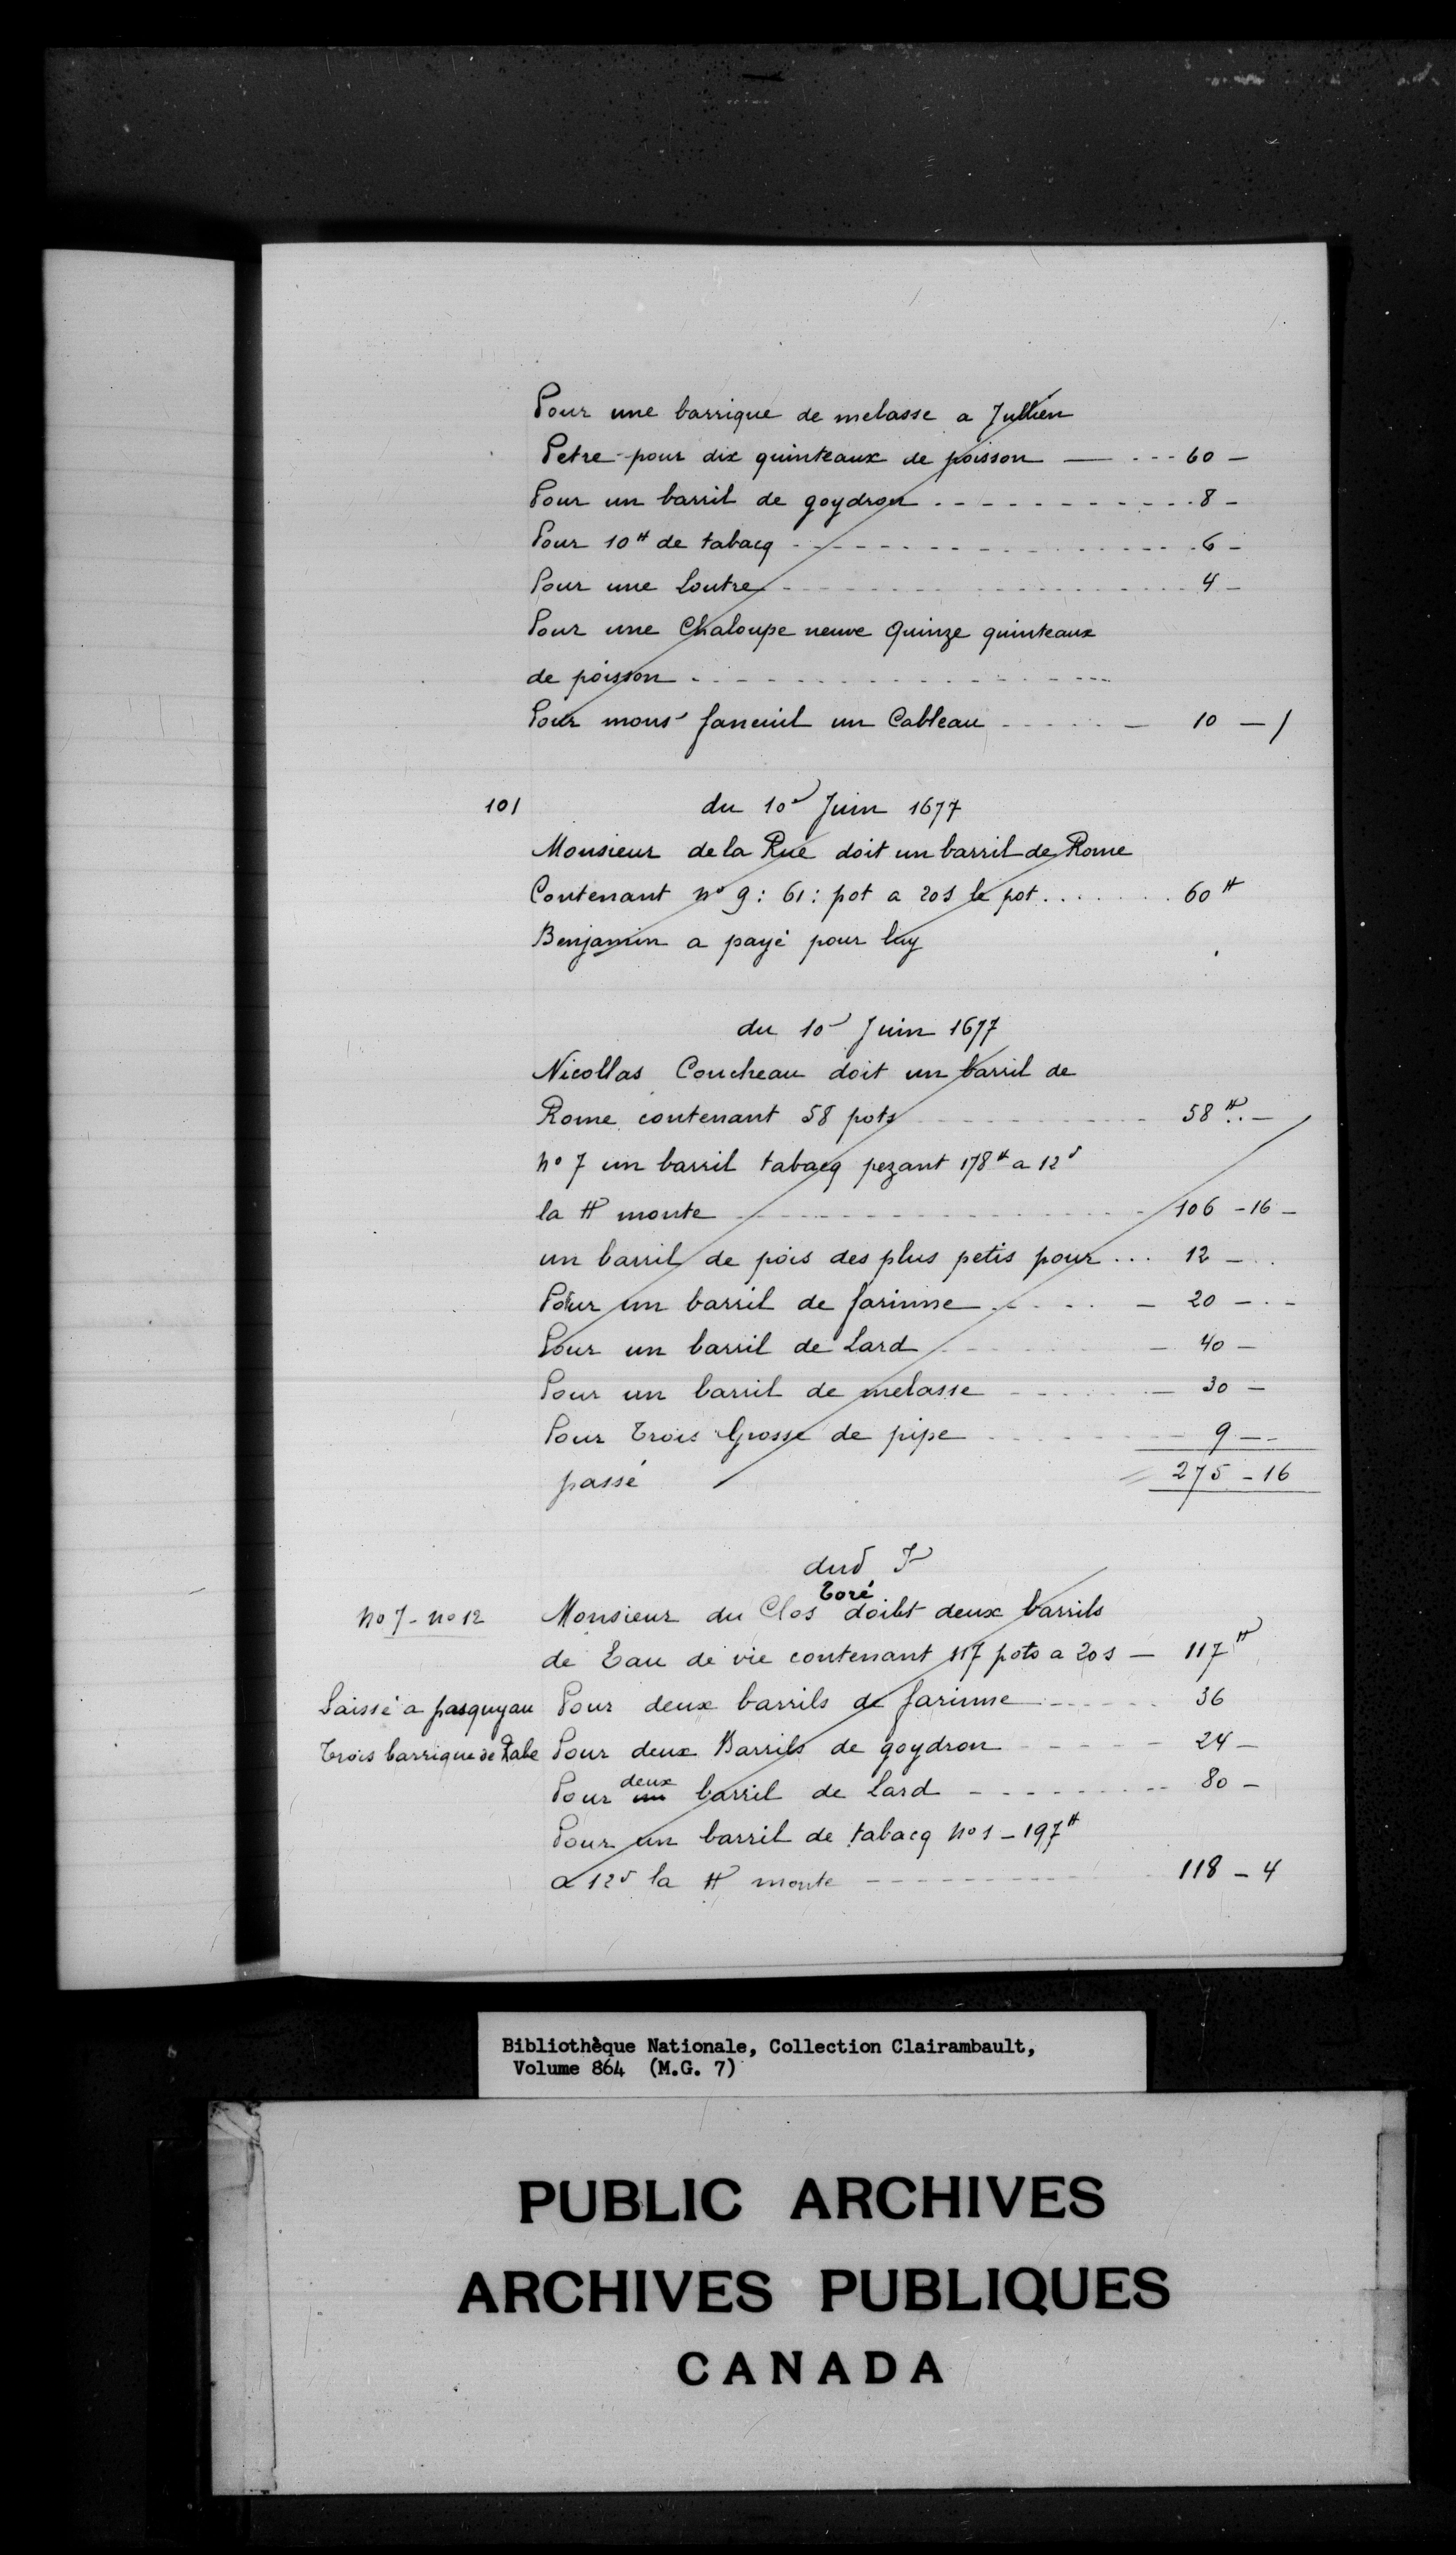 Pour une barrique de melasse a Jullien
Petre pour dix quinteaux de poisson — --- 60 —
Pour un barril de goydron ------------ 8 —
Pour 10 ₶ de tabacq ------------ 6 —
Pour une Loutre ------------ 4 —
Pour une Chaloupe neuve Quinze quinteaux
de poisson ------------
Pour monsr faneuil un Cableau ------ 10 — /
101 du 10e Juin 1677
Monsieur de la Rue doit un barril de Rome
Contenant no 9 : 61 : pot a 20s le pot ........ 60 ₶
Benjamin a payé pour luy
du 10e Juin 1677
Nicollas Coucheau doit un barril de
Rome contenant 58 pots ------------ 58 ₶ . —
no 7 un barril tabacq pezant 178 ₶ a 12s
la ₶ monte ------------ 106 - 16 —
un barril de pois des plus petis pour ... 12 — . .
Pour un barril de farinne ------ 20 — . —
Pour un barril de Lard ------ 40 —
Pour un barril de melasse ------ 30 —
Pour Trois Grosse de pipe ------ 9 — -
passé = 275 - 16
dud Jr
no 7 - no 12 Monsieur du Clos Toré doibt deux barrils
de Eau de vie contenant 117 pots a 20s — 117 ₶
Laissé a pasquyau Pour deux barrils de farinne ------ 36
Trois barrique de Rabe Pour deux Barrils de goydron ------ 24 —
Pour un deux barril de Lard --------- 80 —
Pour un barril de tabacq no 1 - 197 ₶
a 12s la ₶ monte ------------ 118 - 4
Bibliothèque Nationale, Collection Clairambault,
Volume 864 (M.G. 7)
PUBLIC ARCHIVES
ARCHIVES PUBLIQUES
CANADA